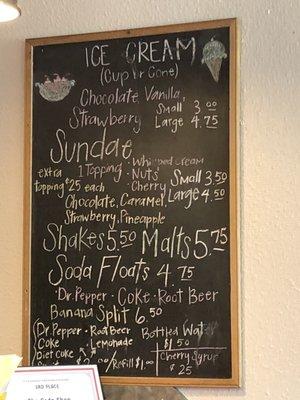 ICE CREAM
(Cup or Cone)
Chocolate Vanilla,
Strawberry
Small 3.00
Large 4.75
Sundae
1 Topping · Whipped Cream
· Nuts
· Cherry
extra
topping $.25 each
Small 3.50
Large 4.50
Chocolate, Caramel,
Strawberry, Pineapple
Shakes 5.50 Malts 5.75
Soda Floats 4.75
Dr. Pepper · Coke · Root Beer
Banana Split 6.50
(Dr. Pepper · Root Beer
Coke · Lemonade
Diet Coke
/Refill $1.00
Bottled Water
$1.50
Cherry Syrup
$.25
3RD PLACE
The Soda Shop